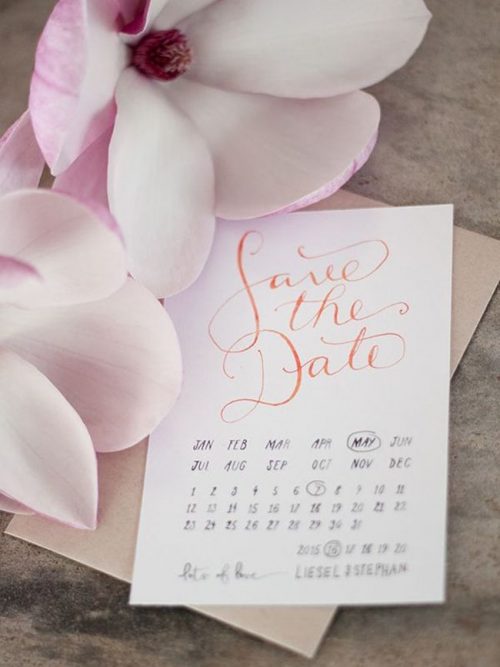 Save
the
Date
JAN FEB MAR APR MAY JUN
JUL AUG SEP OCT NOV DEC
1 2 3 4 5 6 7 8 9 10 11
12 13 14 15 16 17 18 19 20 21 22
23 24 25 26 27 28 29 30 31
2015 16 17 18 19 20
lots of love LIESEL & STEPHAN